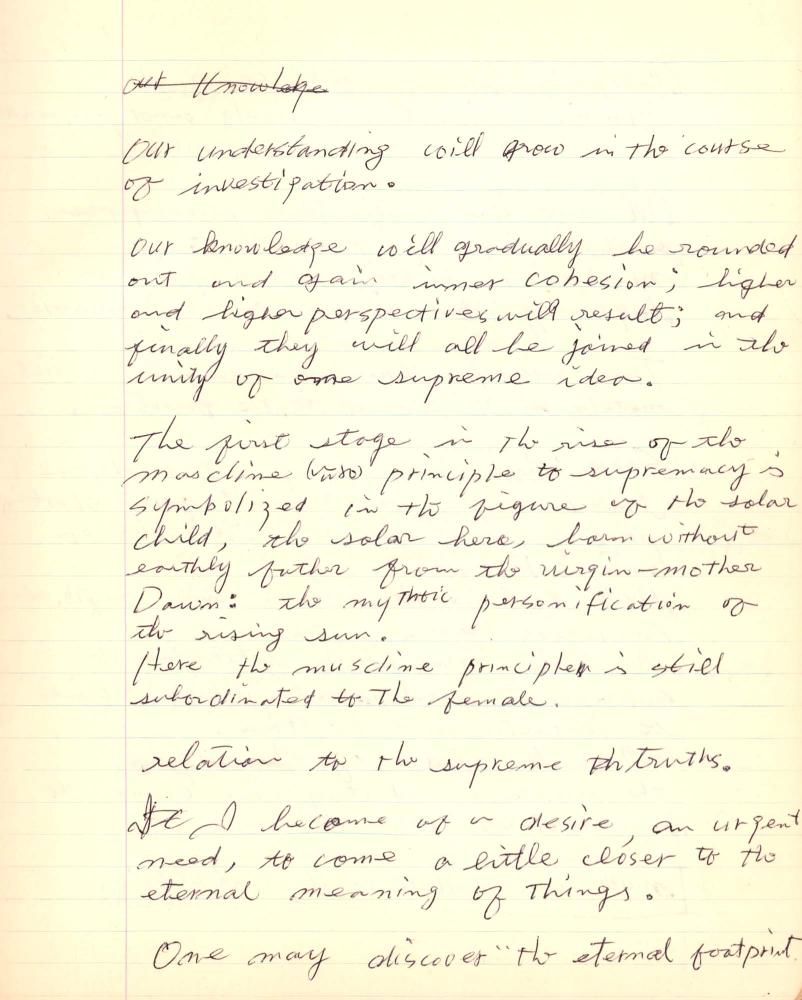 our Knowledge
Our understanding will grow in the course
of investigation.
Our knowledge will gradually be rounded
out and gain inner cohesion; higher
and higher perspectives will result; and
finally they will all be joined in the
unity of one supreme idea.
The first stage in the rise of the
mascline principle to supremacy is
symbolized in the figure of the solar
child, the solar hero, born without
earthly father from the virgin-mother
Dawn: the mythic personification of
the rising sun.
Here the muscline principle is still
subordinated to The female.
relation to the supreme truths.
I become of a desire, an urgent
need, to come a little closer to the
eternal meaning of Things.
One may discover "the eternal footprint